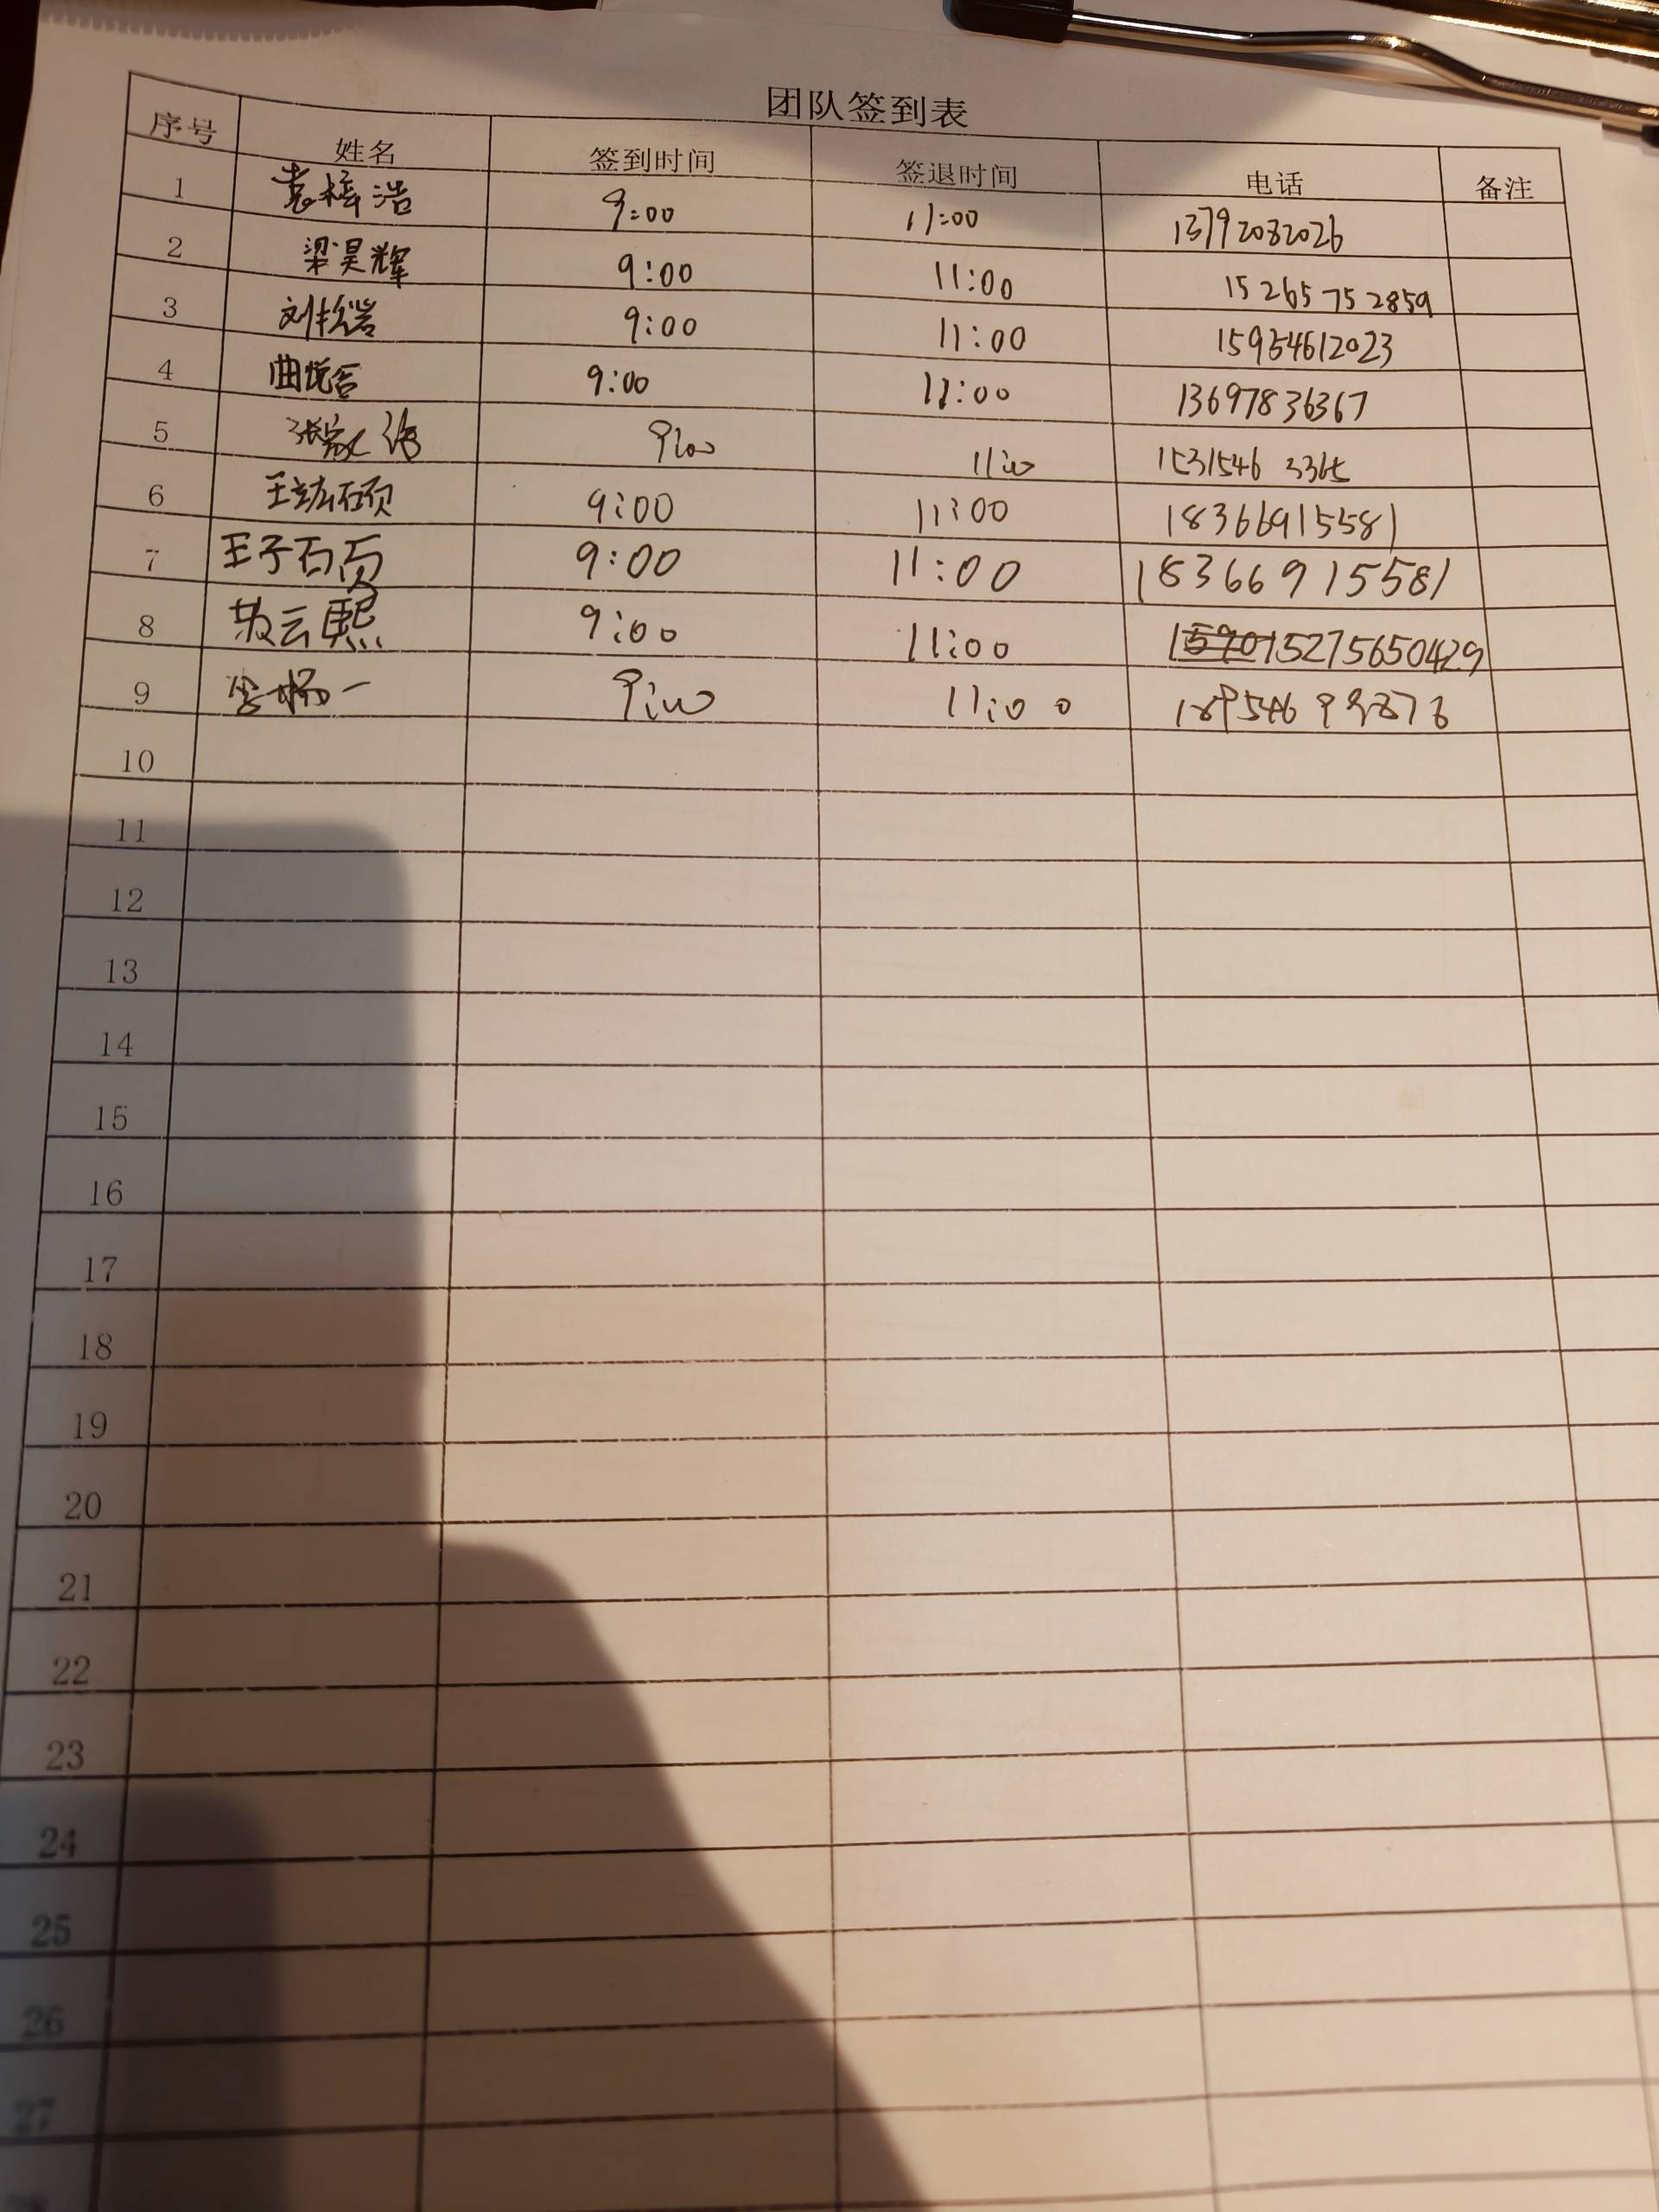 团队签到表
序号 姓名 签到时间 签退时间 电话 备注
1 袁梓浩 9:00 11:00 13792082026
2 梁昊辉 9:00 11:00 15265752859
3 9:00 11:00 15954612023
4 曲悦含 9:00 11:00 13697836367
5 9:00 11:00
6 王竑硕 9:00 11:00 18366915581
7 王子硕 9:00 11:00 18366915581
8 云熙 9:00 11:00 15275650429
9 9:00 11:00
10
11
12
13
14
15
16
17
18
19
20
21
22
23
24
25
26
27